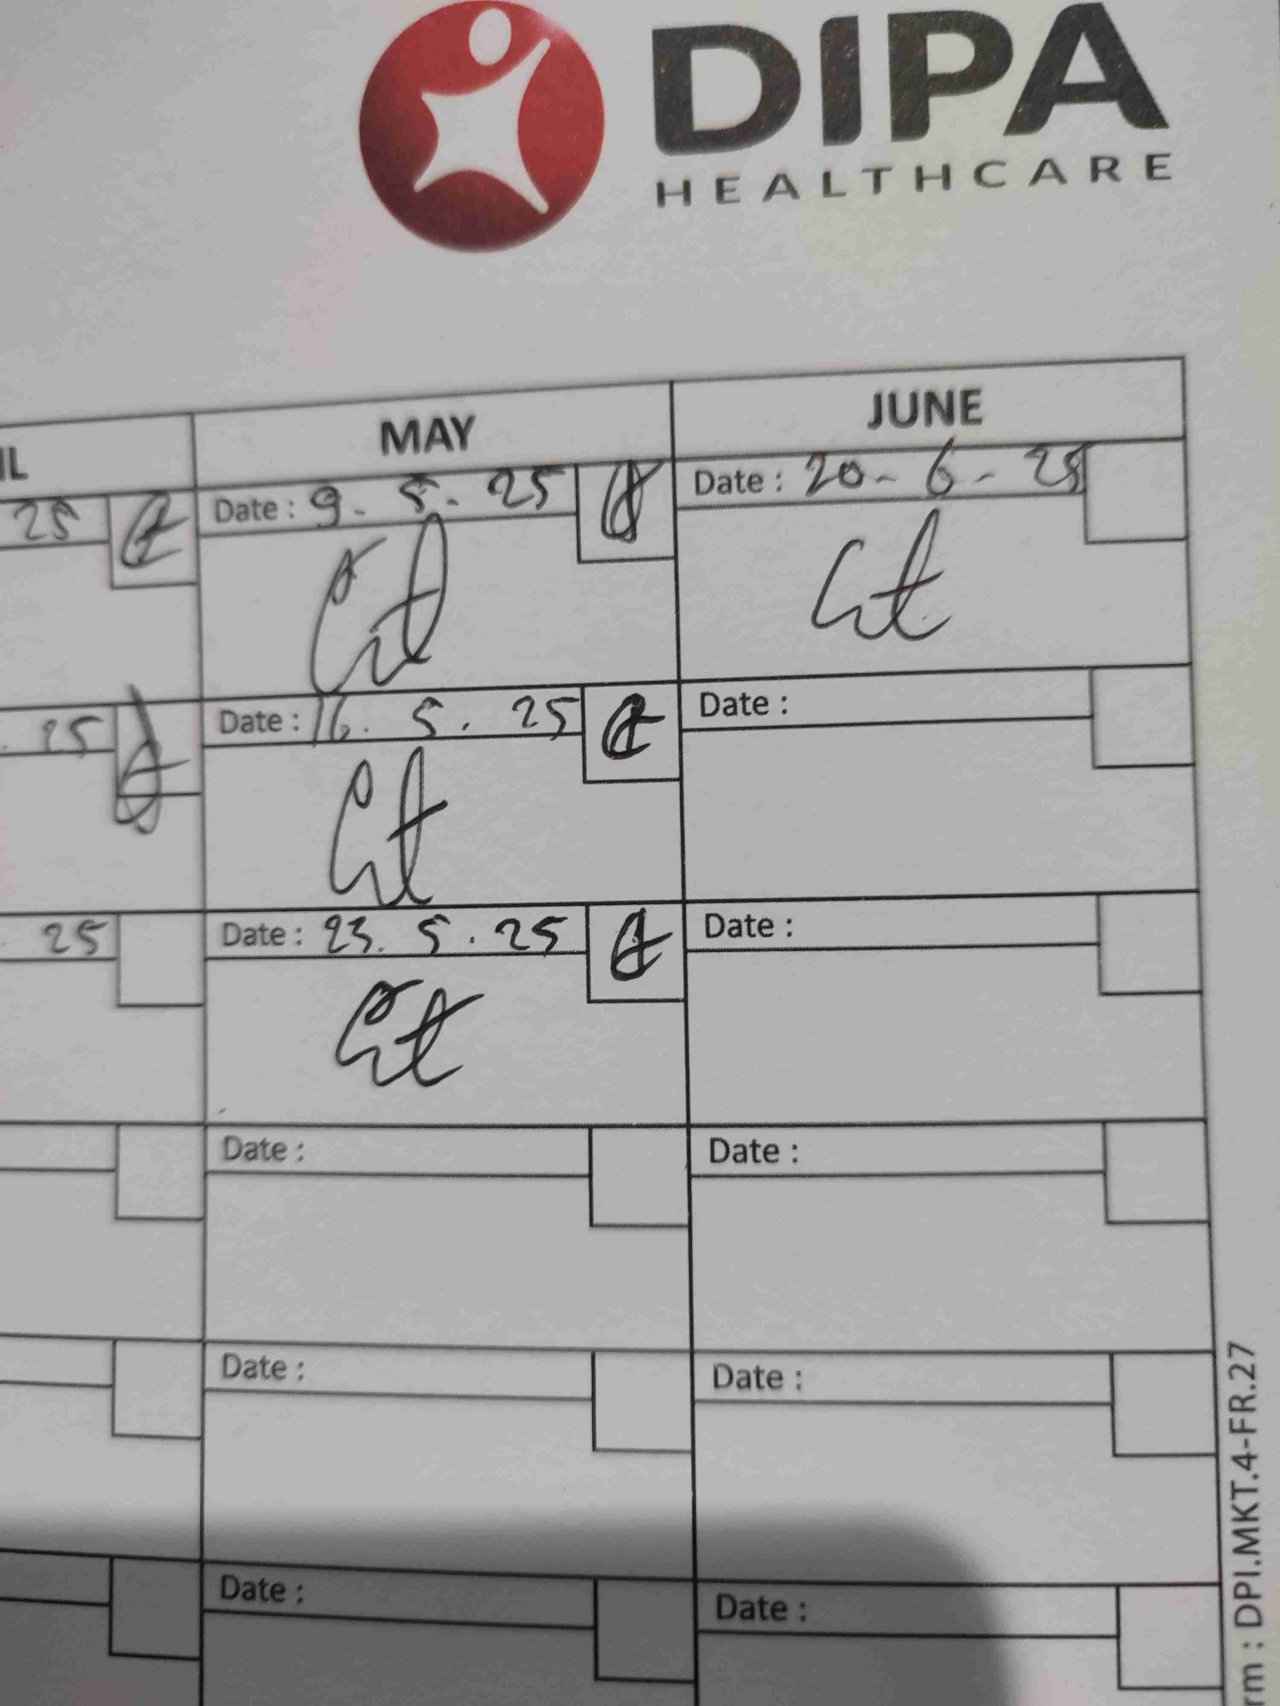 DIPA
HEALTHCARE
IL
MAY
JUNE
25
Date : 9. 5. 25
Date : 20- 6- 25
. 25
Date : 16. 5. 25
Date :
. 25
Date : 23. 5. 25
Date :
Date :
Date :
Date :
Date :
Date :
Date :
rm : DPI.MKT.4-FR.27